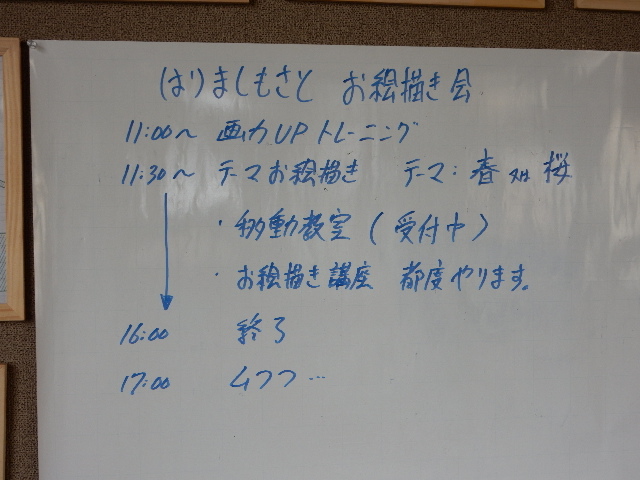 はりましもさと お絵描き会
11:00～ 画力UPトレーニング
11:30～ テーマお絵描き テーマ:春 又は 桜
・移動教室(受付中)
・お絵描き講座 都度やります。
16:00 終了
17:00 ムフフ…